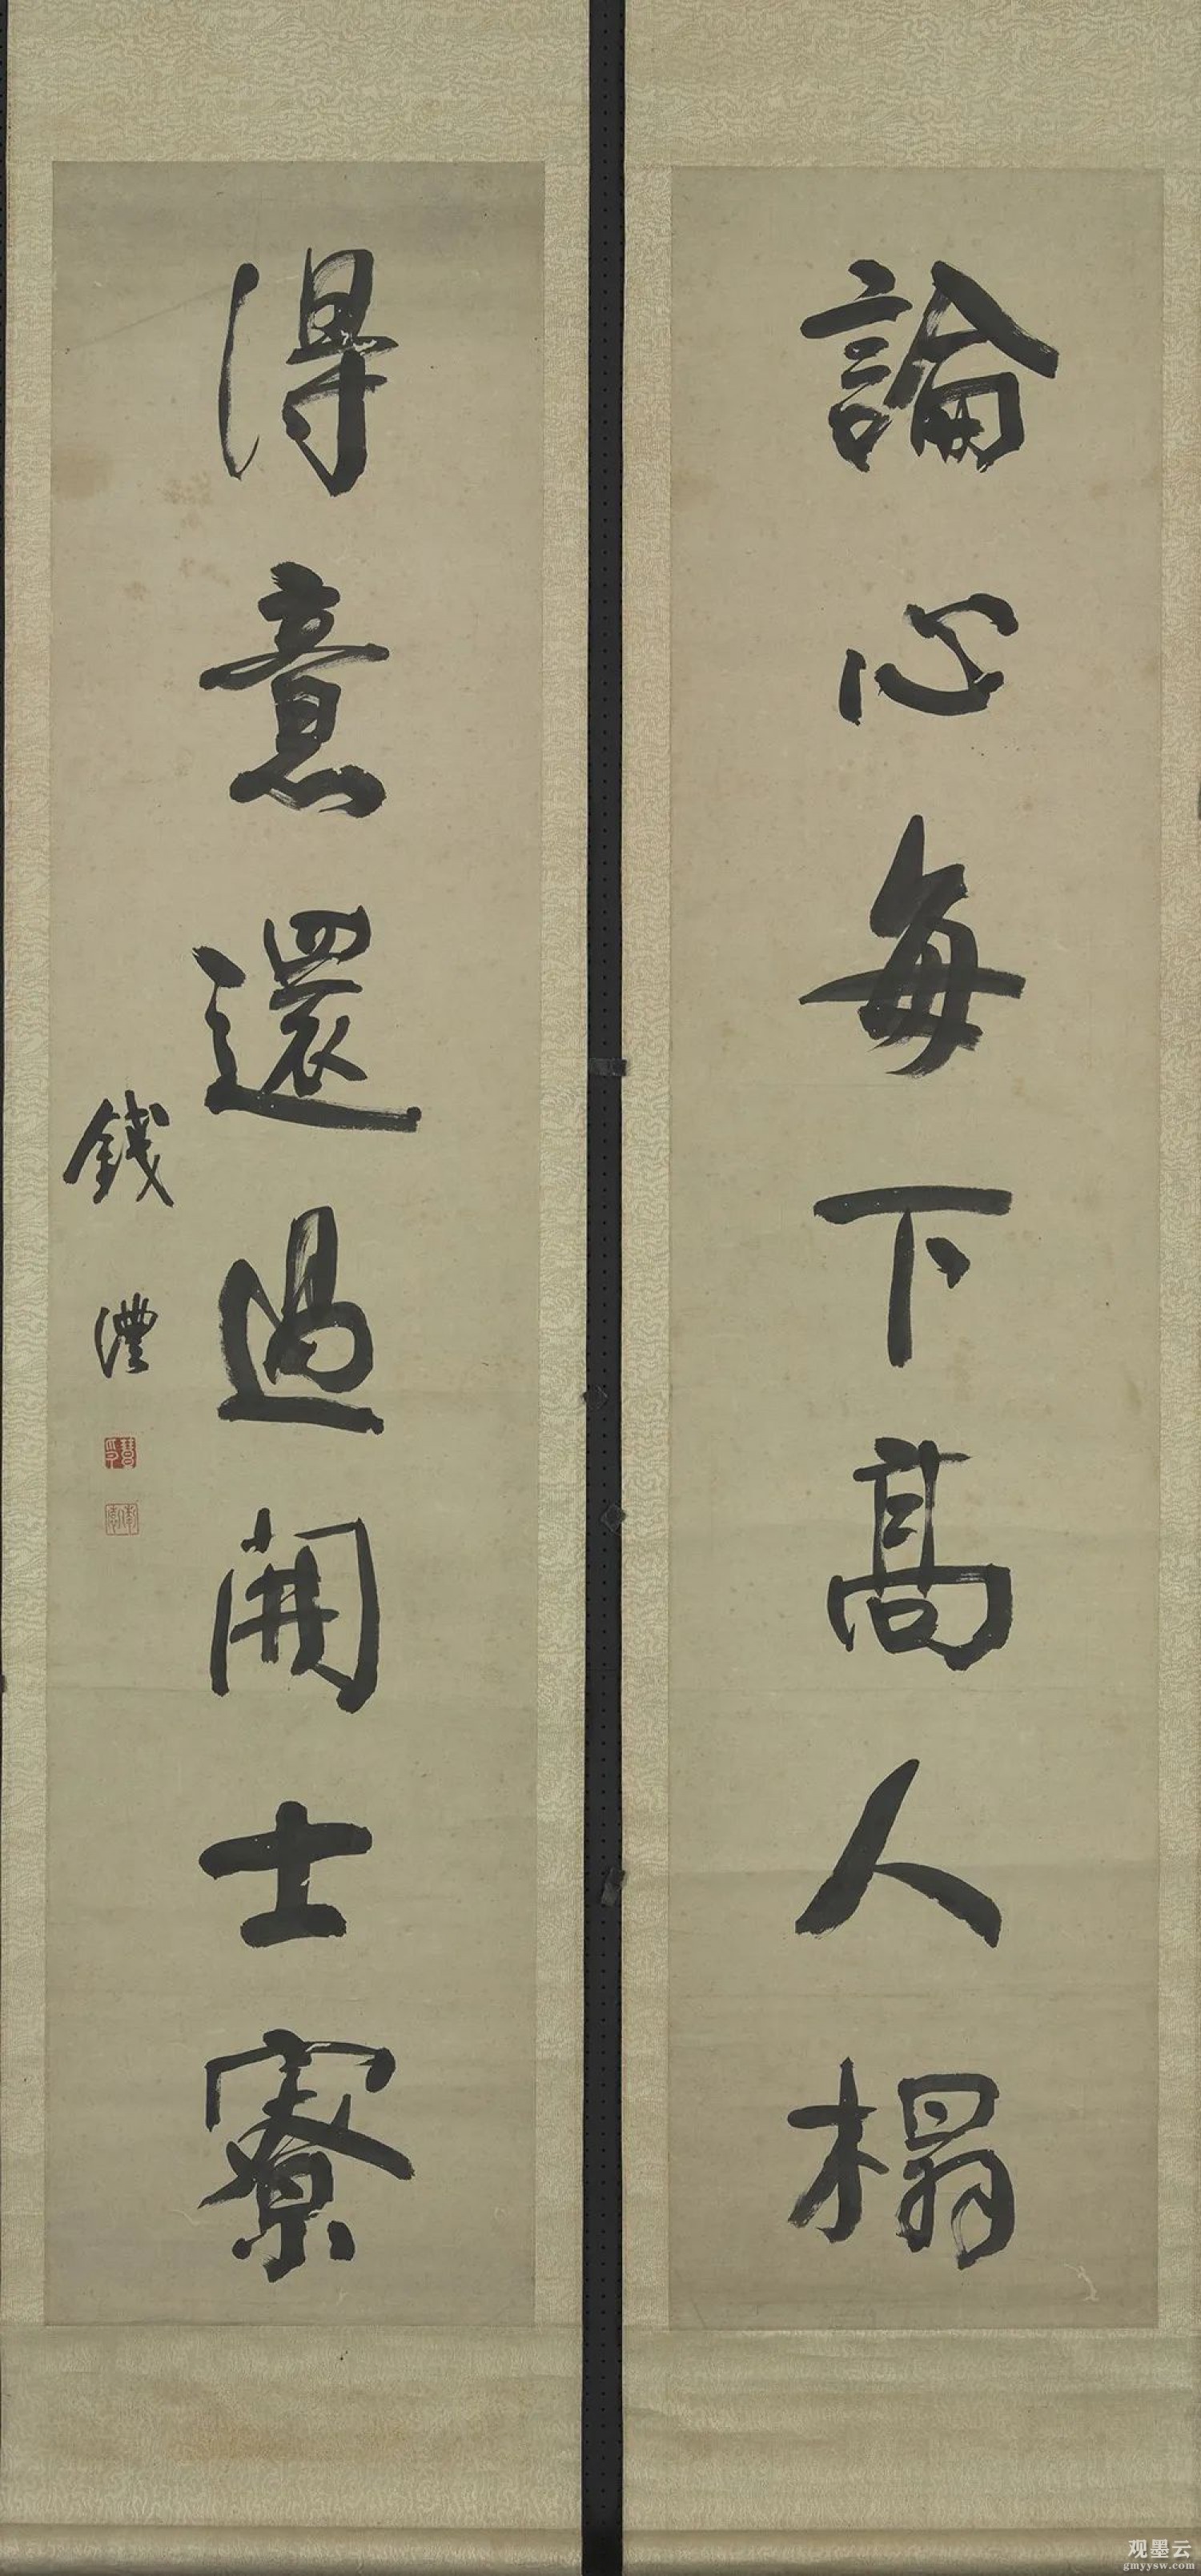 論心每下高人榻
得意還過開士寮
錢灃
观墨云
gmyysw.com